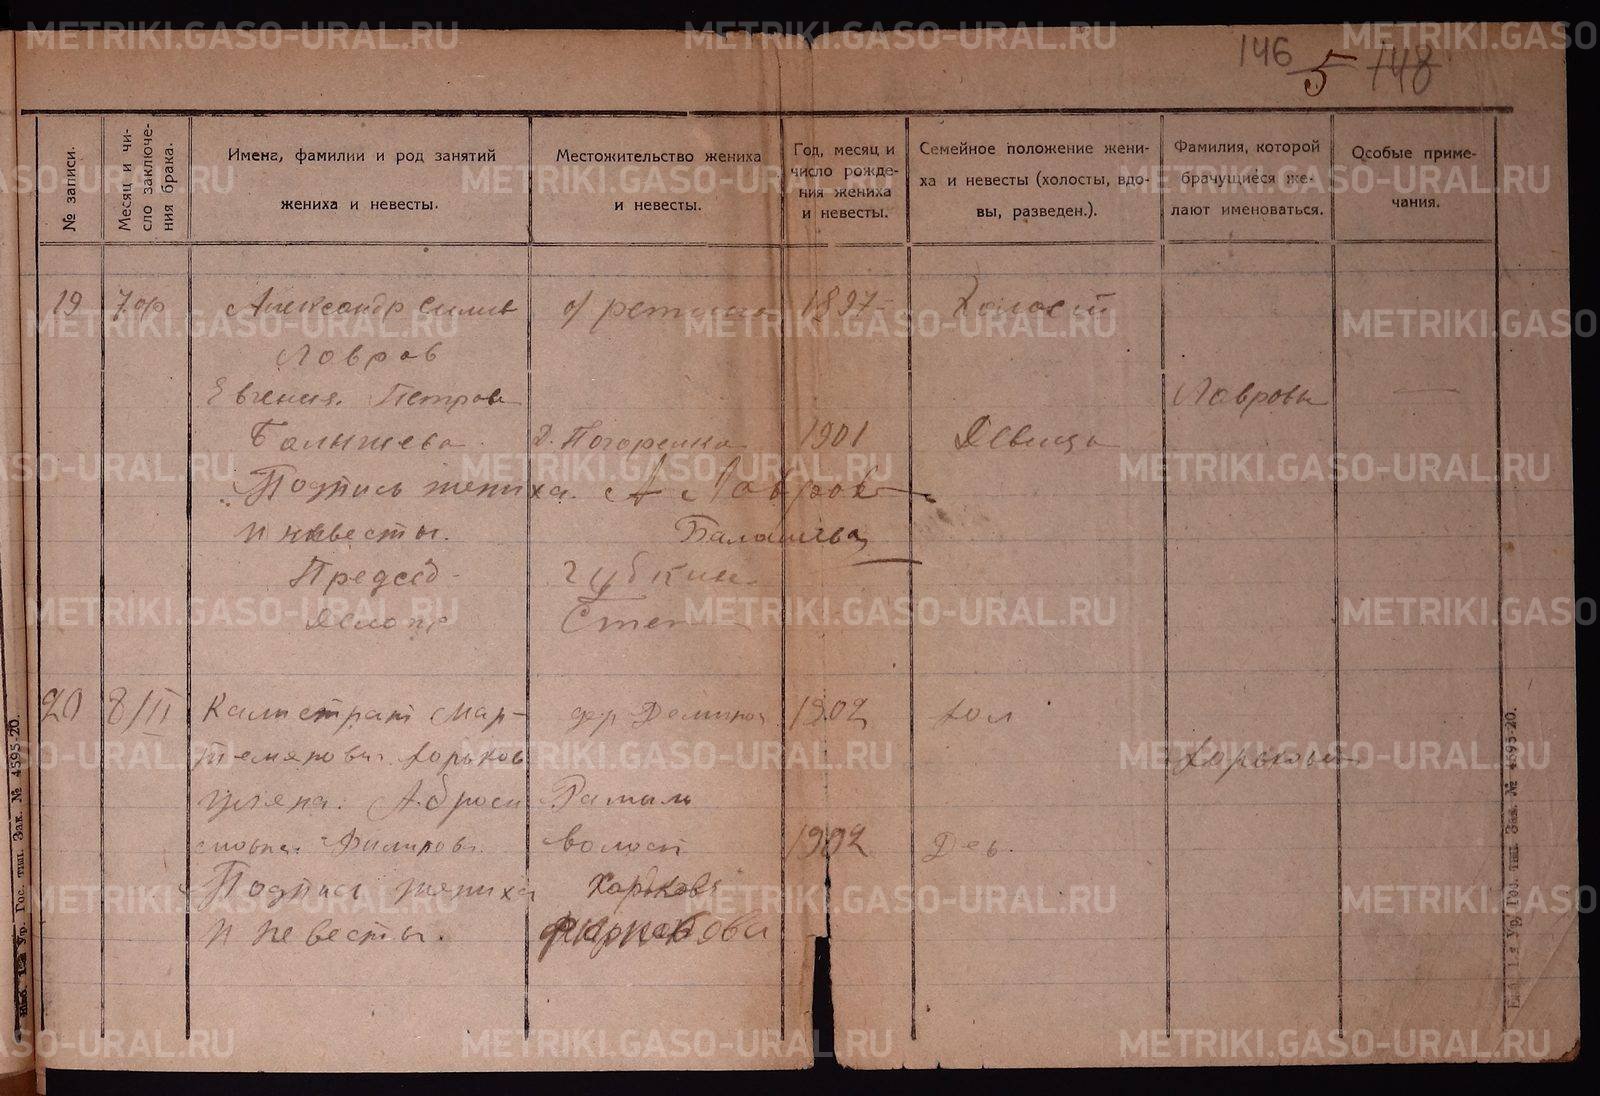 METRIKI.GASO-URAL.RU METRIKI.GASO-URAL.RU METRIKI.GASO
146 5 148
№ записи.
Месяц и чи-
сло заключе-
ния брака.
Имена, фамилии и род занятий
жениха и невесты.
Местожительство жениха
и невесты.
Год, месяц и
число рожде-
ния жениха
и невесты.
Семейное положение жени-
ха и невесты (холосты, вдо-
вы, разведен.).
Фамилия, которой
брачущиеся же-
лают именоваться.
Особые приме-
чания.
SO-URAL.RU METRIKI.GASO-URAL.RU METRIKI.GASO-URAL.RU
19 Александр 1897 Холост
METRIKI.GASO-URAL.RU METRIKI.GASO-URAL.RU METRIKI.GASO
Лавров
Евгения Петров Лавровы
Балышева Д. Погорелка 1901 Девица
SO-URAL.RU METRIKI.GASO-URAL.RU METRIKI.GASO-URAL.RU
Подпись жениха А Лавров
и невесты. Балашева
Председ Губкин
METRIKI.GASO-URAL.RU METRIKI.GASO-URAL.RU METRIKI.GASO
Делопр
20 8/II Калистрат Мар- дер 1902 хол
SO-URAL.RU METRIKI.GASO-URAL.RU METRIKI.GASO-URAL.RU
темянович Харьков Харьковы
Аброси
мовна 1902 Дев.
волост
METRIKI.GASO-URAL.RU METRIKI.GASO-URAL.RU METRIKI.GASO
Подпись жениха Харьков
и невесты.
Ур. Гос. тип. Зак. № 4595-20.
Ур. Гос. тип. Зак. № 4595-20.
SO-URAL.RU METRIKI.GASO-URAL.RU METRIKI.GASO-URAL.RU